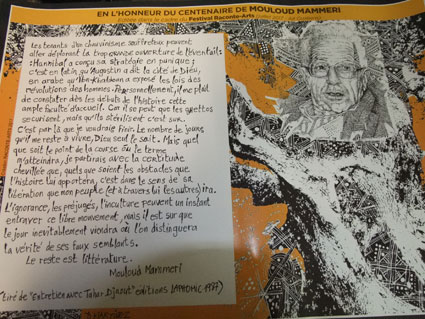 EN L'HONNEUR DU CENTENAIRE DE MOULOUD MAMMERI
Festival Raconte-Arts
Les tenants d'un chauvinisme souffreteux peuvent
aller déplorant la trop grande ouverture de l'éventail:
Hannibal a conçu sa stratégie en punique;
c'est en latin qu'Augustin a dit la cité de Dieu,
en arabe qu'Ibn-Khaldoun a exposé les lois des
révolutions des hommes. Personnellement, il me plait
de constater dès les débuts de l'histoire cette
ample faculté d'accueil. Car il se peut que les ghettos
sécurisent, mais qu'ils stérilisent c'est sûr.
C'est par là que je voudrais finir. Le nombre de jours
qu'il me reste à vivre, Dieu seul le sait. Mais quel
que soit le point de la course où le terme
m'atteindra, je partirais avec la certitude
chevillée que, quels que soient les obstacles que
l'histoire lui apportera, c'est dans le sens de sa
libération que mon peuple (et à travers lui les autres) ira.
L'ignorance, les préjugés, l'inculture peuvent un instant
entraver ce libre mouvement, mais il est sûr que
le jour inévitablement viendra où l'on distinguera
la vérité de ses faux semblants.
Le reste est littérature.
Mouloud Mammeri
(tiré de "Entretien avec Tahar Djaout" éditions LAPHOMIC 1987)